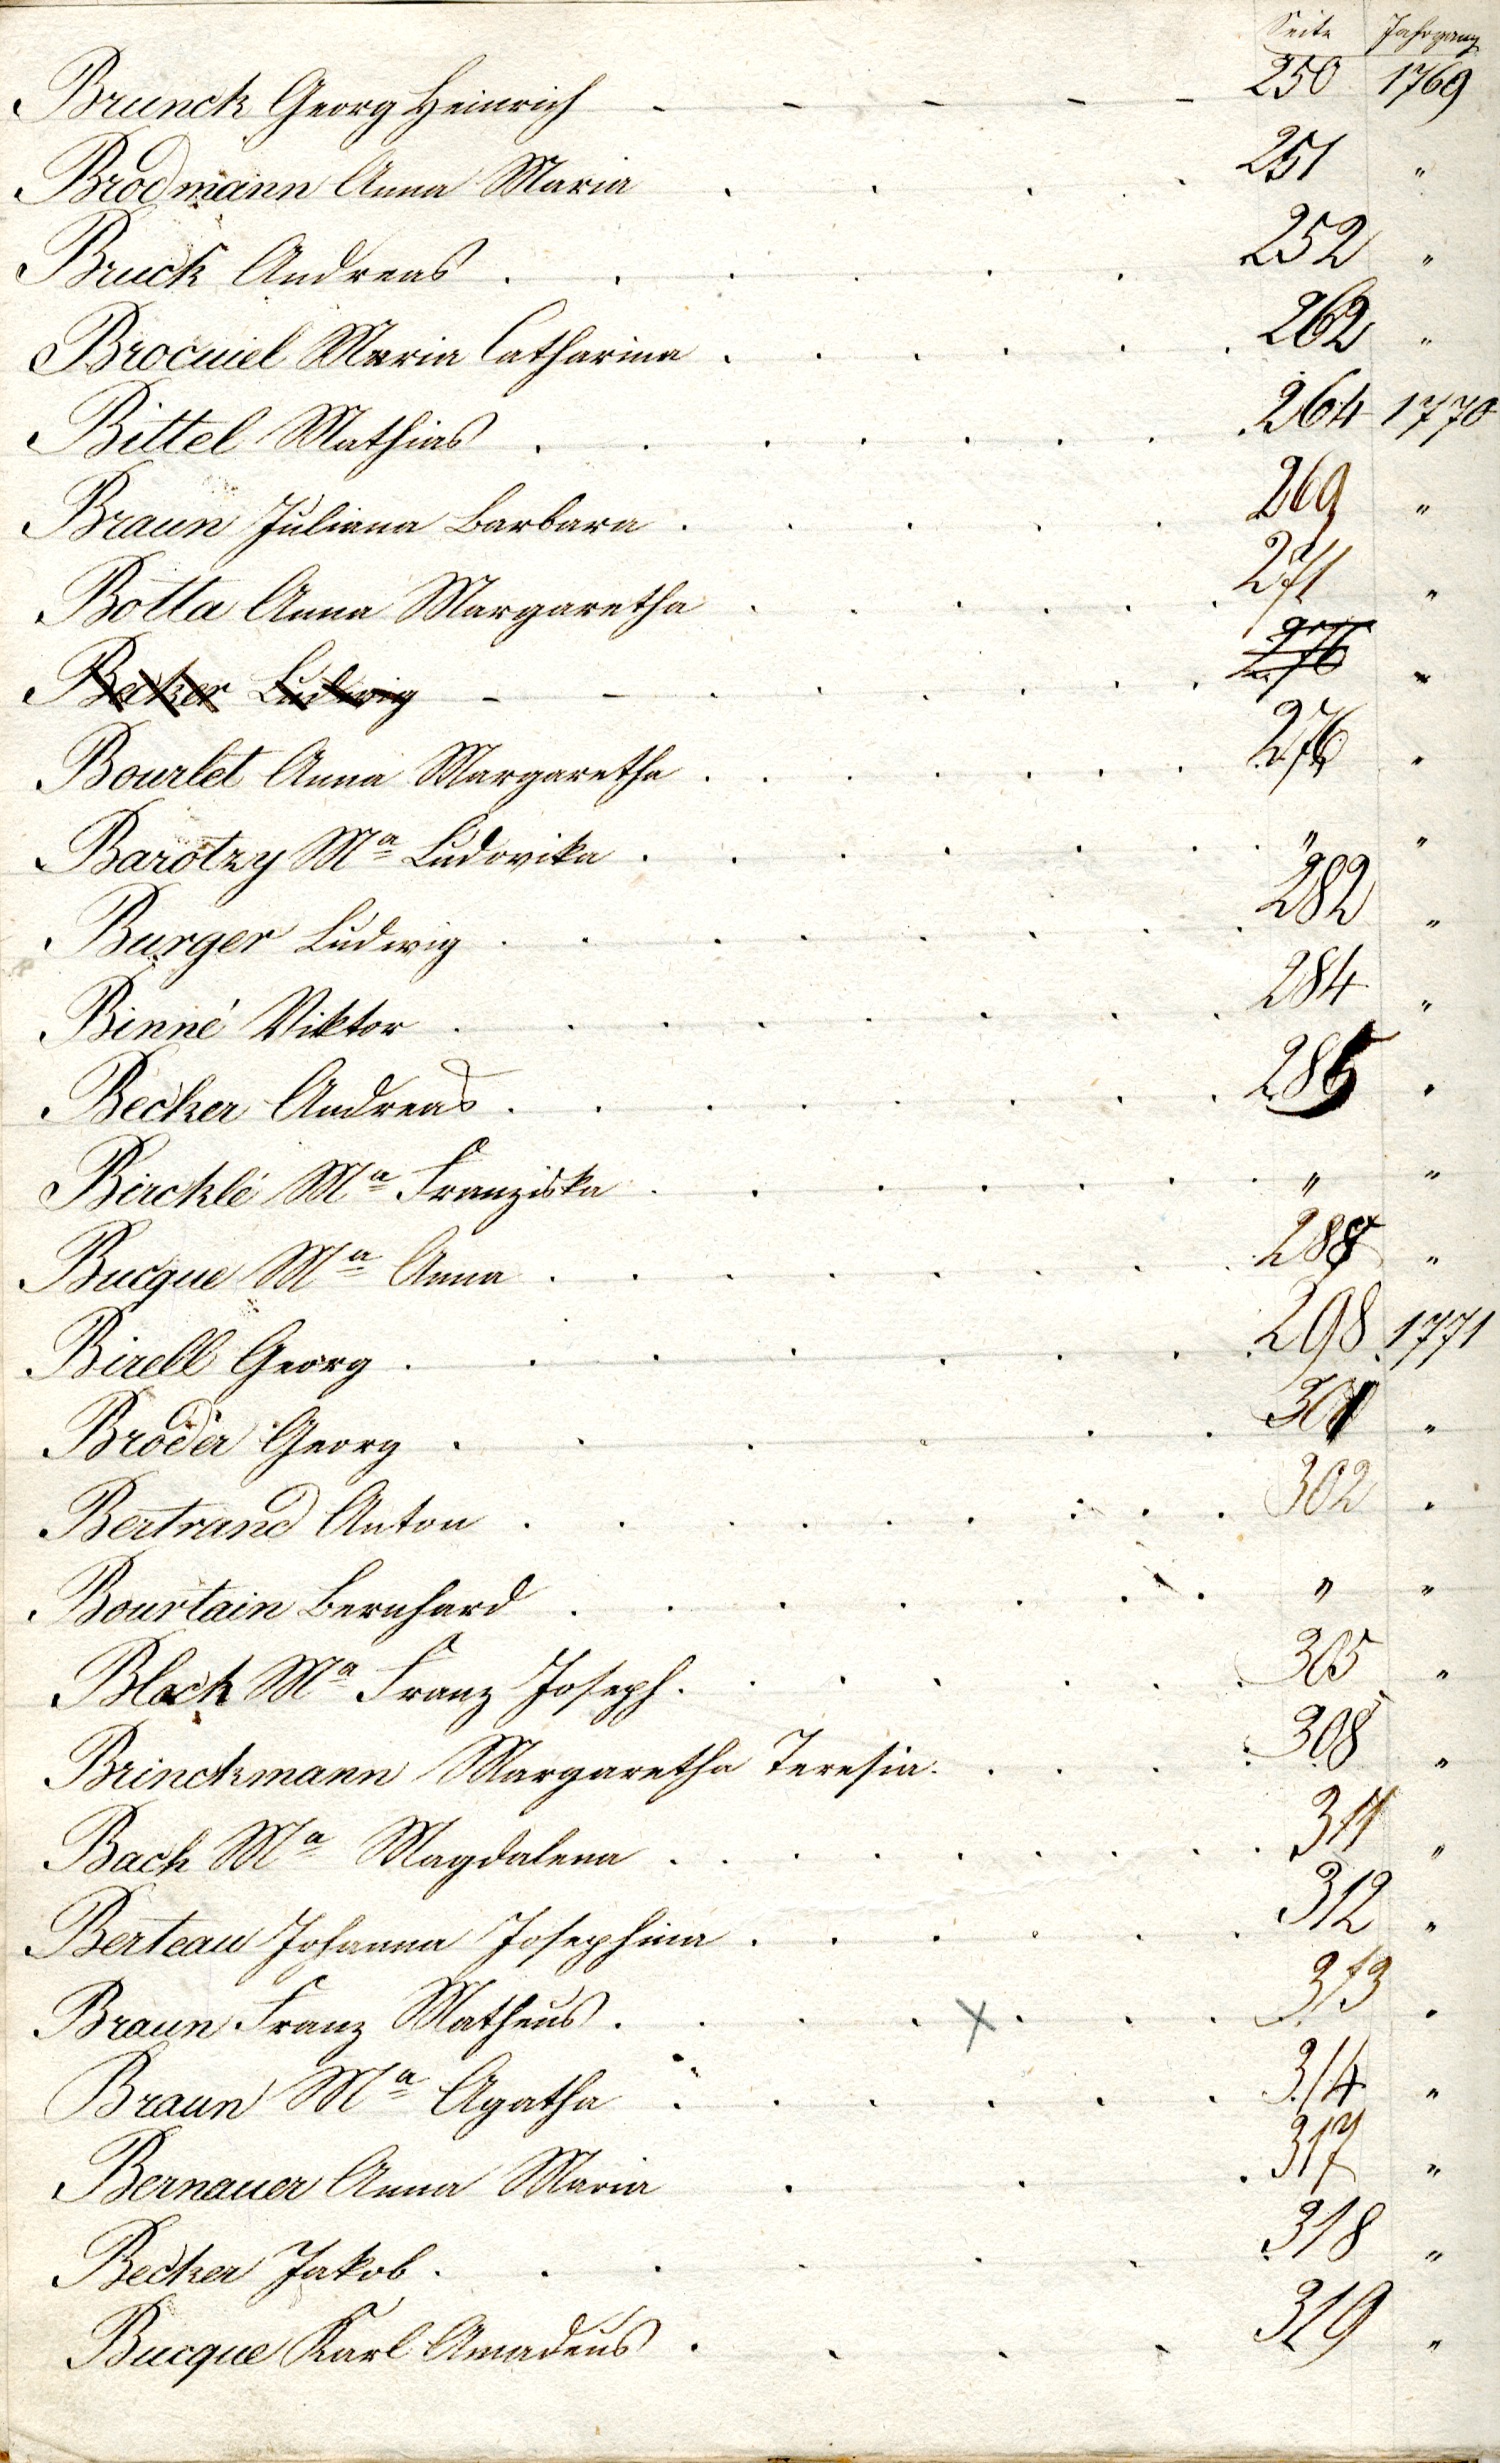 Seite Jahrgang
Brunck Georg Heinrich - - - - - 250 1769
Brodmann Anna Maria . . . . 251 "
Bruck Andreas . . . . . . 252 "
Brocuiel Maria Catharina . . . . . . 262 "
Bittel Mathias . . . . . . . 264 1770
Braun Juliana Barbara . . . . . 269 "
Botta Anna Margaretha . . . . . . 271 "
Becker Ludwig - - . . . . . 276 "
Bourlet Anna Margaretha . . . . . . 276 "
Barotzy Mª Ludovika . . . . . . . " "
Burger Ludwig . . . . . . . 282 "
Binné Viktor . . . . . . . 284 "
Becker Andreas . . . . . . . 285 "
Bircklé Mª Franziska . . . . . . . " "
Bucque Mª Anna . . . . . . . 287 "
Birell Georg . . . . . . . 298 1771
Broder Georg . . . . . . 301 "
Bertrand Anton . . . . . . . . 302 "
Bourtain Bernhard . . . . . . . " "
Block Mª Franz Joseph . . . . . . . 305 "
Brinckmann Margaretha Teresia . . . . 308 "
Bach Mª Magdalena . . . . . . . . 311 "
Berteau Johanna Josephina . . . . . . 312 "
Braun Franz Matheus . . . . X . . . 313 "
Braun Mª Agatha . . . . . . 314 "
Bernauer Anna Maria . . . 317 "
Becker Jakob . . . . . . 318 "
Bucque Karl Amadeus . . . . 319 "